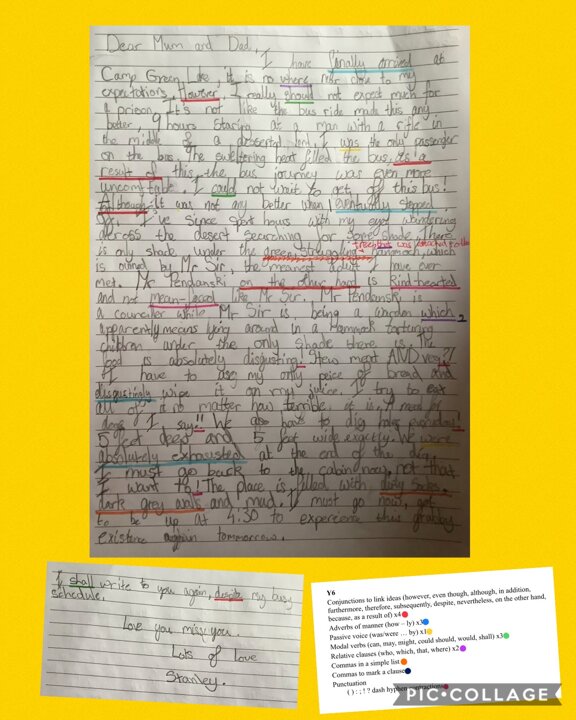 Dear Mum and Dad,
I have finally arrived at
Camp Green Lake, it is no where near close to my
expectations. However, I really should not expect much for
a prison. It's not like the bus ride made this any
better, 9 hours staring at a man with a rifle in
the middle of a desserted land. I was the only passenger
on the bus. The sweltering heat filled the bus. As a
result of this the bus journey was even more
I could not wait to get off this bus!
Although it was not any better when I eventually stepped
I've since spent hours with my eyes wandering
across the desert searching for some shade. There
is only shade under the trees that was
hammock, which
is owned by Mr Sir, the meanest adult I have ever
met. Mr Pendanski on the other hand is kind-hearted
and not mean-faced like Mr Sir. Mr Pendanski is
a while Mr Sir is being a warden which 2
apparently means lying around in a Hammock torturing
children under the only shade there is. The
food is absolutely disgusting! Stew meat AND veg?!
I have to use my only peice of bread and
disgustingly wipe it on my juice. I try to eat
all of it no matter how terrible it is. A meal for
dogs I say!! We also have to dig holes everyday!
5 feet deep and 5 feet wide exactly. We were
absolutely exhausted at the end of the dig.
I must go back to the cabin now, not that
I want to! The place is filled with dirty socks,
dark grey walls and mud. I must go now, got
to be up at 4:30 to experience this
again tommorrow.
I shall write to you again, despite my busy
schedule.
Love you miss you
Lots of Love
Stanley.
Y6
Conjunctions to link ideas (however, even though, although, in addition,
furthermore, therefore, subsequently, despite, nevertheless, on the other hand,
because, as a result of) x4
Adverbs of manner (how – ly) x3
Passive voice (was/were … by) x1
Modal verbs (can, may, might, could should, would, shall) x3
Relative clauses (who, which, that, where) x2
Commas in a simple list
Commas to mark a clause
Punctuation
( ) : ; ! ? dash hyphen contractions
PIC•COLLAGE